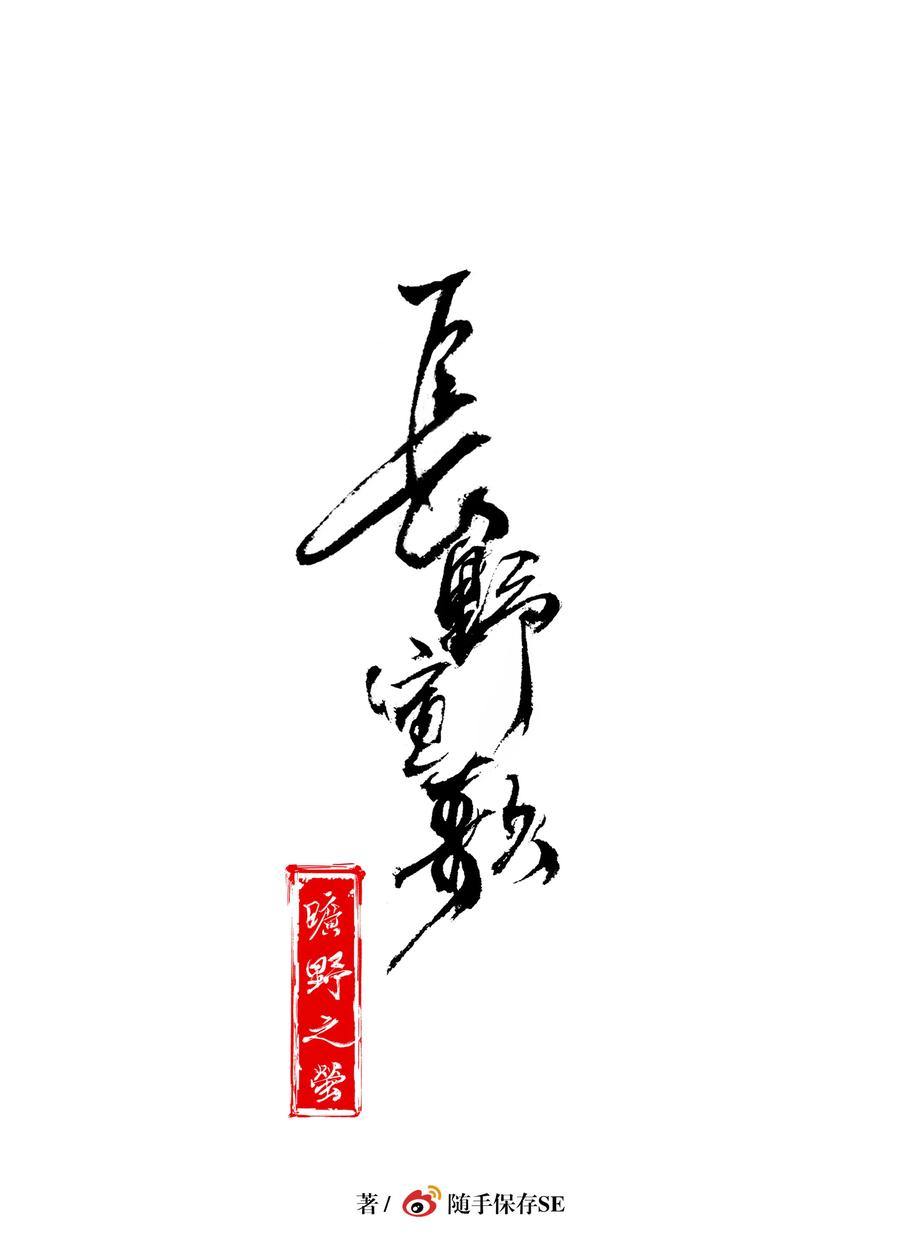 長野宣歌
曠野之螢
著 / 随手保存SE